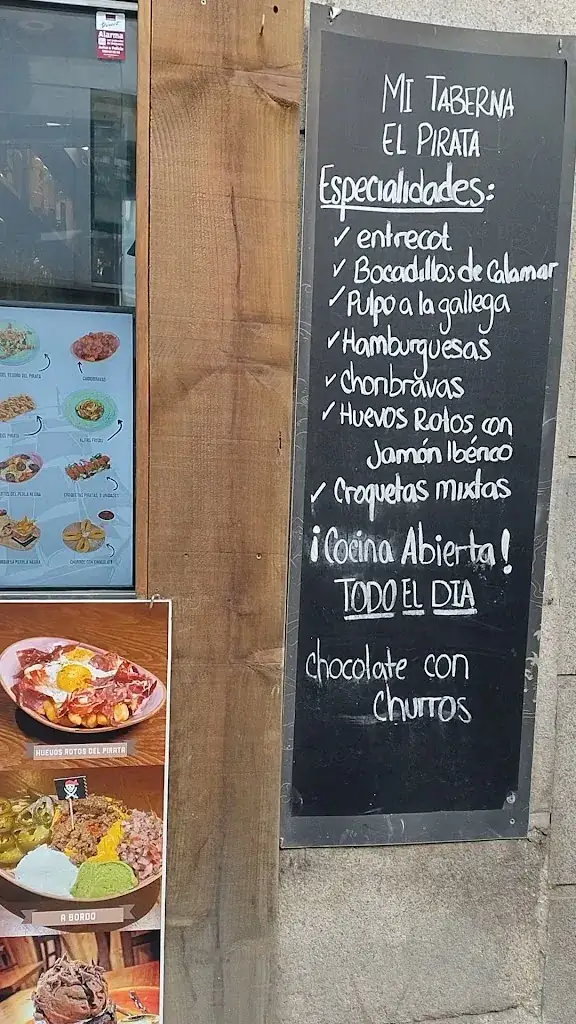 Alarma
MI TABERNA
EL PIRATA
Especialidades:
✓ entrecot
✓ Bocadillos de Calamar
✓ Pulpo a la gallega
✓ Hamburguesas
✓ Choribravas
✓ Huevos Rotos con
Jamón Ibérico
✓ Croquetas mixtas
¡Cocina Abierta!
TODO EL DIA
chocolate con
Churros
CHORIBRAVAS
CHURROS CON CHOCOLATE
HUEVOS ROTOS DEL PIRATA
A BORDO